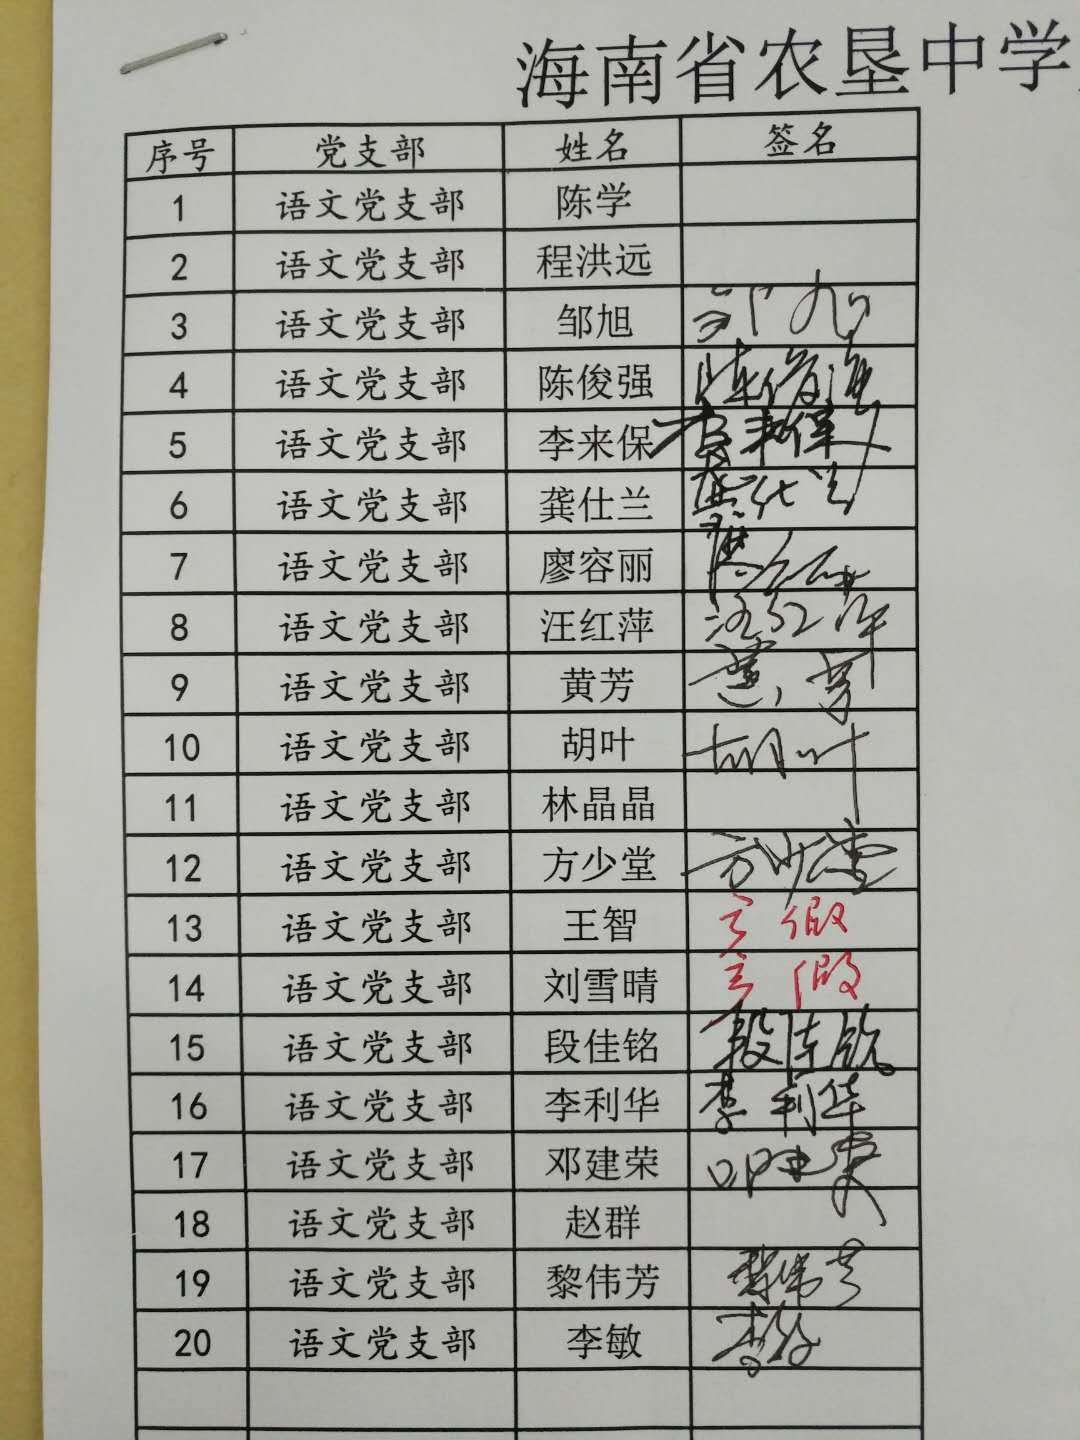 海南省农垦中学
序号 党支部 姓名 签名
1 语文党支部 陈学
2 语文党支部 程洪远
3 语文党支部 邹旭
4 语文党支部 陈俊强 陈俊强
5 语文党支部 李来保 李来保
6 语文党支部 龚仕兰 龚仕兰
7 语文党支部 廖容丽
8 语文党支部 汪红萍 汪红萍
9 语文党支部 黄芳 黄芳
10 语文党支部 胡叶 胡叶
11 语文党支部 林晶晶
12 语文党支部 方少堂 方少堂
13 语文党支部 王智 产假
14 语文党支部 刘雪晴 产假
15 语文党支部 段佳铭 段佳铭
16 语文党支部 李利华 李利华
17 语文党支部 邓建荣 邓建荣
18 语文党支部 赵群
19 语文党支部 黎伟芳 黎伟芳
20 语文党支部 李敏 李敏